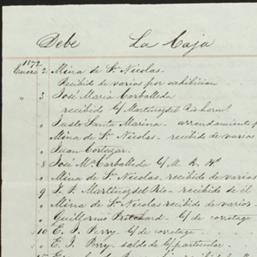 Debe La Caja
1872
Enero 2 Mina de Sn. Nicolas.
Recibido de varios por exhibicion
" 3 José Maria Carballeda
recibido c/ Martinez del Rio horm!
" Justo Santa Marina - arrendamiento
Mina de Sn. Nicolas - recibido de varios
" Juan Cortazar.
" 8 José Ma. Carballeda c/
" Mina de Sn. Nicolas, recibido de varios
" 9 J. P. Martinez del Rio - recibido de él
" Mina de Sn. Nicolas recibido de varios -
" Guillermo Pritchard - c/ de corretage
" 10 E. J. Perry c/ de corretage.
" E. J. Perry. saldo de c/ particular.